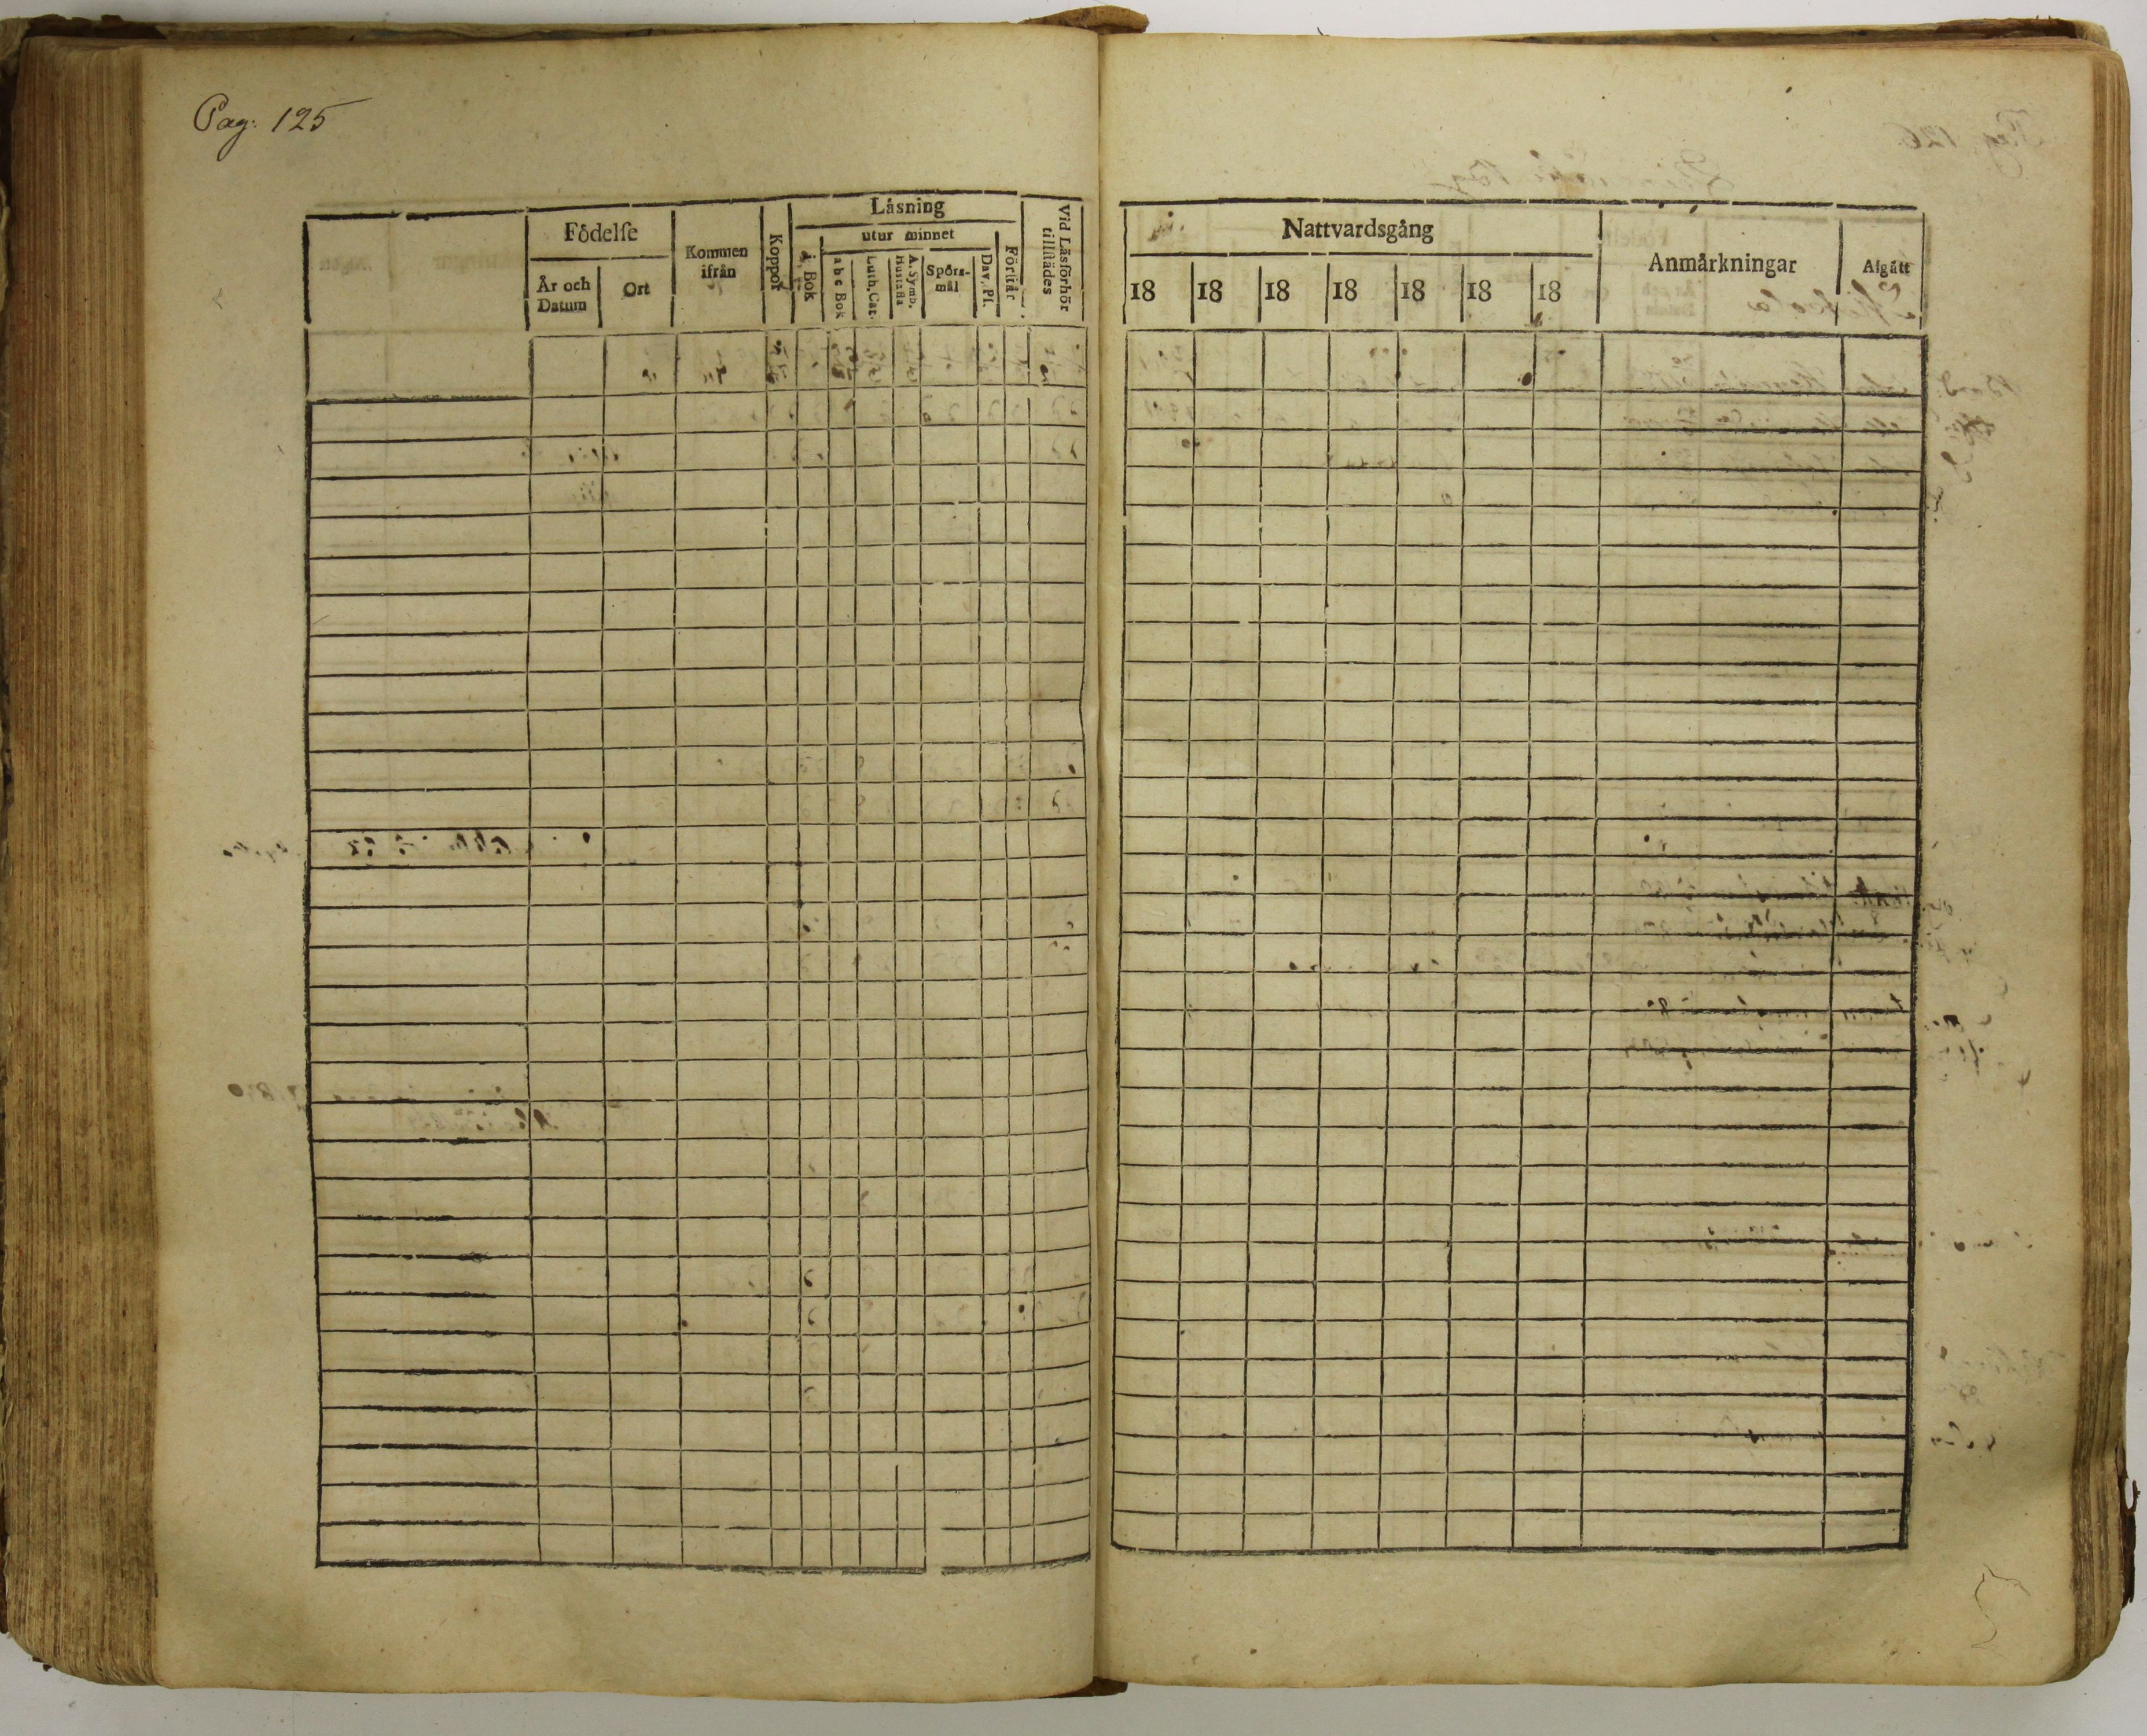 Pag: 125
Födelse
År och Datum
Ort
Kommen ifrån
Koppor
Läsning
i Bok
utur minnet
a b c Bok
Luth. Cat.
A. Symb. Hustafla
Spörsmål
Dav. Pf.
Förstår
Vid Läsförhör tillstädes
Nattvardsgång
18 18 18 18 18 18 18
Anmärkningar
Afgått